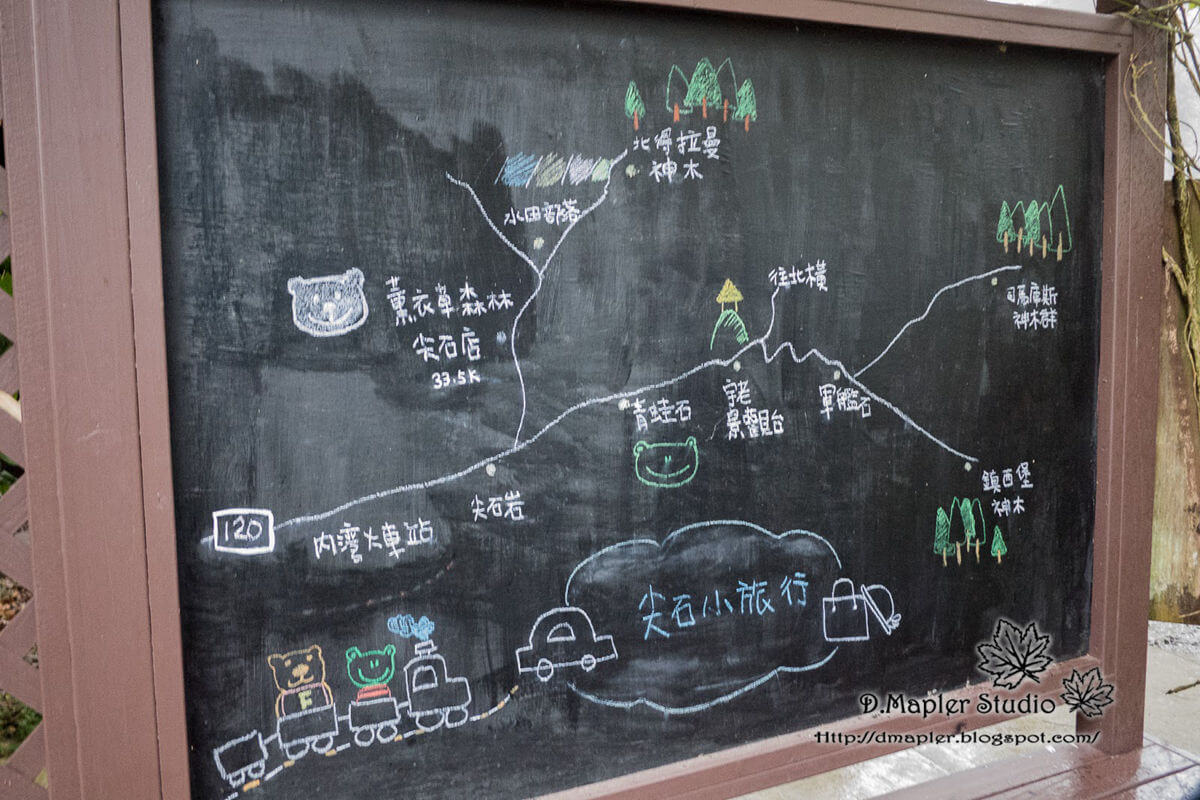 北得拉曼
神木
水田部落
薰衣草森林
尖石店
33.5K
往北橫
司馬庫斯
神木群
青蛙石
宇老
景觀台
軍艦石
鎮西堡
神木
尖石岩
120
内灣火車站
尖石小旅行
F
D.Mapler Studio
Http://dmapler.blogspot.com/